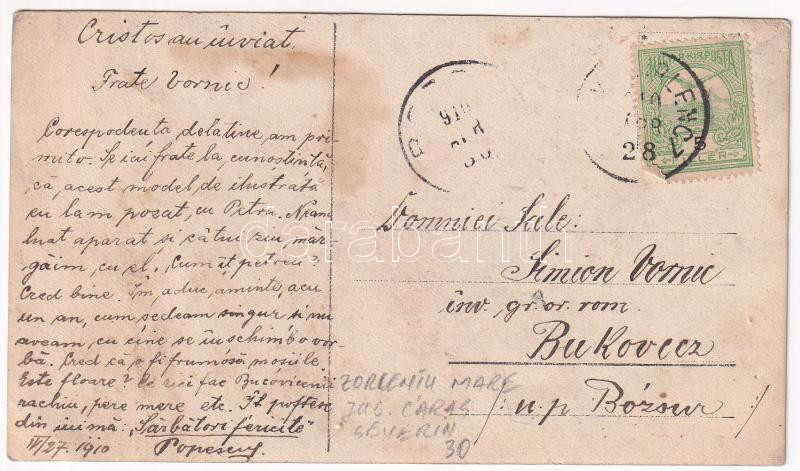 Cristos au înviat.
Frate Vornic!
Corespodenta delatine, am pri-
mito. Se ici frate la, cunostintă,
că, acest model de ilustrată
eu lam posat, cu Petru. Neam
luat aparat si cătu ziu, măr-
găim, cu el, Cum îț petreci?
Cred bine. Im, aduc, aminte, acu
un an, cum sedeam singur si nu
aveam, cu cine se înschimb o vor-
bă. Cred că, o fi frumósă mosiile
Este floare? Ce zici fac Bucovicenii
rachiu, pere mere etc. Iț poftesc
din inimă: „Sarbători fericite"
IV/27. 1910 Popescu
Domniei Sale:
Simion Vornic
înv. gr. or. rom.
Bukovecz
/u. p. Bózsur/
ZORLENȚU MARE
JUD. CARAS
SEVERIN
30
910
28
MAGYAR KIR. POSTA
5
FILLÉR
darabanth